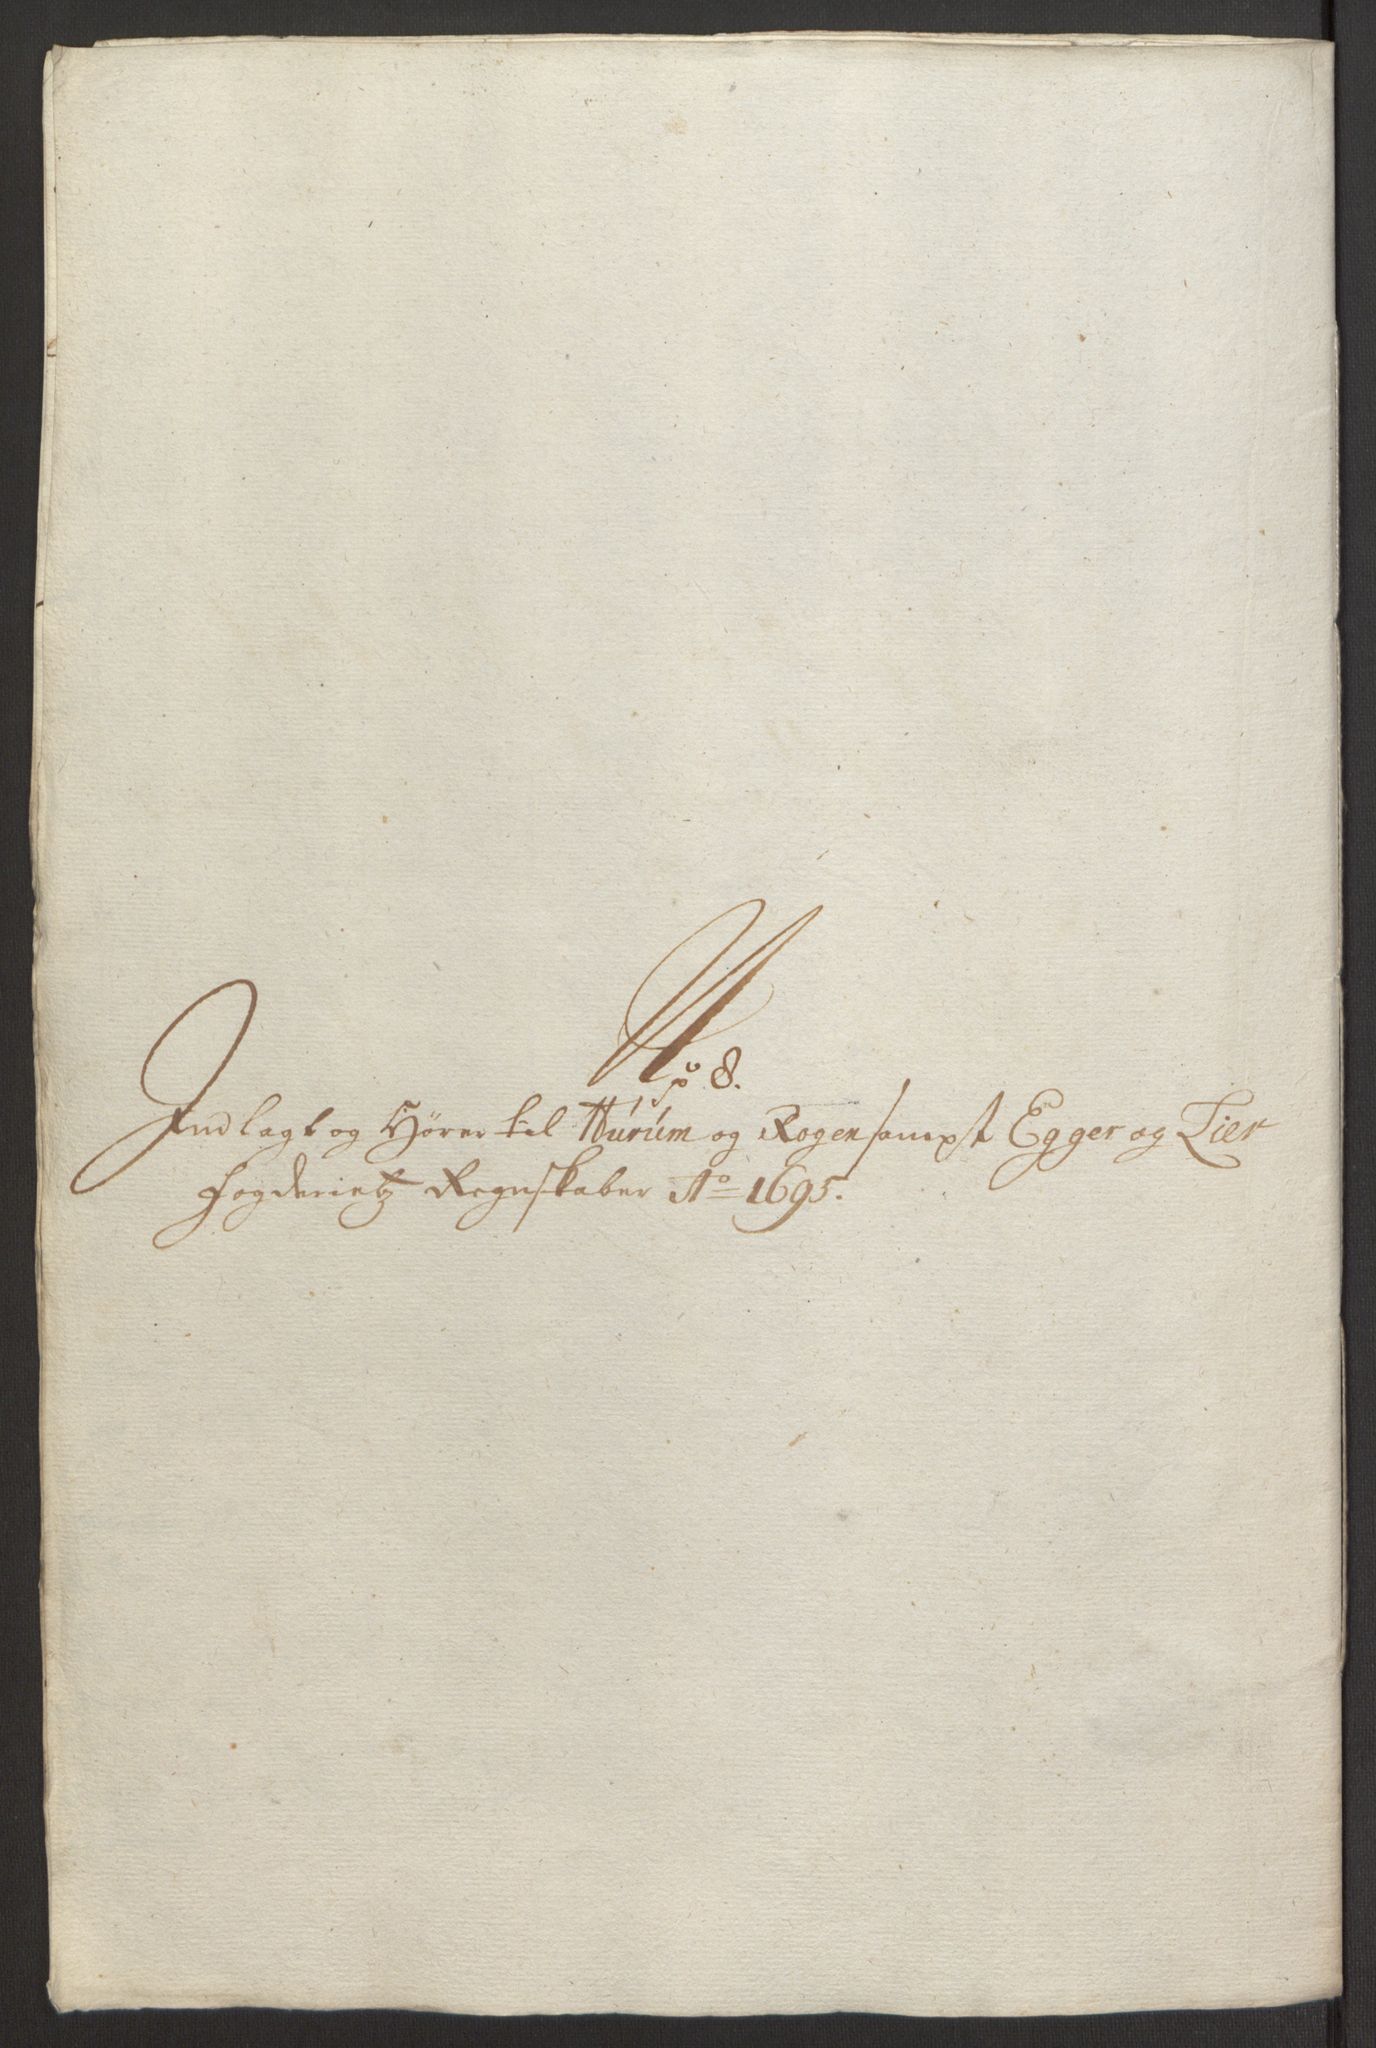 No 8.
Indlagt og Hører til Hurúm og Rogen sampt Egger og Lier
fogderietz Regnskaber Ao 1695.